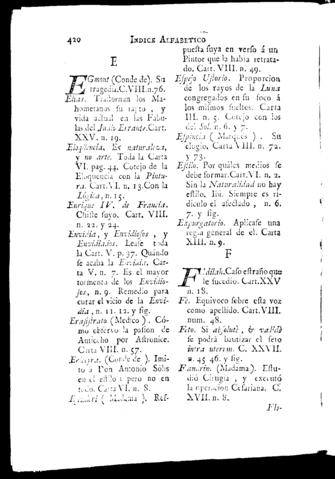 420 INDICE ALFABETICO
E
EGmont (Conde de). Su
tragedia. C. VIII. n. 76.
Elias. Trastornan los Ma-
hometanos su rapto, y
vida actual en las Fabu-
las del Judio Errante. Cart.
XXV. n. 19.
Eloqüencia. Es naturaleza,
y no arte. Toda la Carta
VI. pag. 44. Cotejo de la
Eloquencia con la Pintu-
ra. Cart. VI. n. 13. Con la
Lógica, n. 15.
Enrique IV. de Francia.
Chiste suyo. Cart. VIII.
n. 22. y 24.
Envidia, y Envidiosos, y
Envidiados. Lease toda
la Cart. V. p. 37. Quándo
se acaba la Envidia. Car-
ta V. n. 7. Es el mayor
tormento de los Envidio-
sos, n. 9. Remedio para
curar el vicio de la Envi-
dia, n. 11. 12. y sig.
Erasistrato (Medico). Có-
mo observó la pasion de
Antiocho por Astronice.
Carta VIII. n. 57.
(Conde de). Imi-
tó á Don Antonio Solís
en el estilo; pero no en
todo. Cart. VI. n. 8.
(Madama). Res-
puesta suya en verso á un
Pintor que la habia retrata-
do. Cart. VIII. n. 49.
Espejo Ustorio. Proporcion
de los rayos de la Luna
congregados en su foco á
los mismos sueltos. Carta
III. n. 5. Cotejo con los
del Sol. n. 6. y 7.
Espinola (Marqués). Su
elogio. Carta VIII. n. 72.
y 73.
Estilo. Por quáles medios se
debe formar. Cart. VI. n. 2.
Sin la Naturalidad no hay
estilo, ibi. Siempre es ri-
diculo el afectado, n. 6.
7. y sig.
Expurgatorio. Aplicase una
regla general de el. Carta
XIII. n. 9.
F
Caso estraño que
le sucedio. Cart. XXV
n. 18.
Fé. Equivoco sobre esta voz
como apellido. Cart. VIII.
num. 48.
Feto. Si absolutè, & validè
se podrá bautizar el feto
intra uterum. C. XXVII.
n. 45. 46. y sig.
(Madama). Estu-
dió Cirugia, y executó
la operacion Cesariana. C.
XVII. n. 8.
Flo-